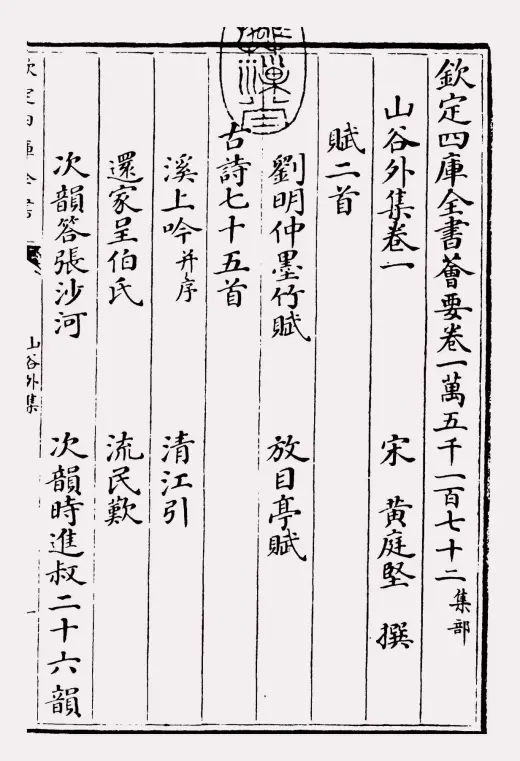 欽定四庫全書薈要卷一萬五千一百七十二集部
山谷外集卷一 宋 黃庭堅 撰
賦二首
劉明仲墨竹賦 放目亭賦
古詩七十五首
溪上吟并序 清江引
還家呈伯氏 流民歎
次韻答張沙河 次韻時進叔二十六韻
欽定四庫全書
山谷外集